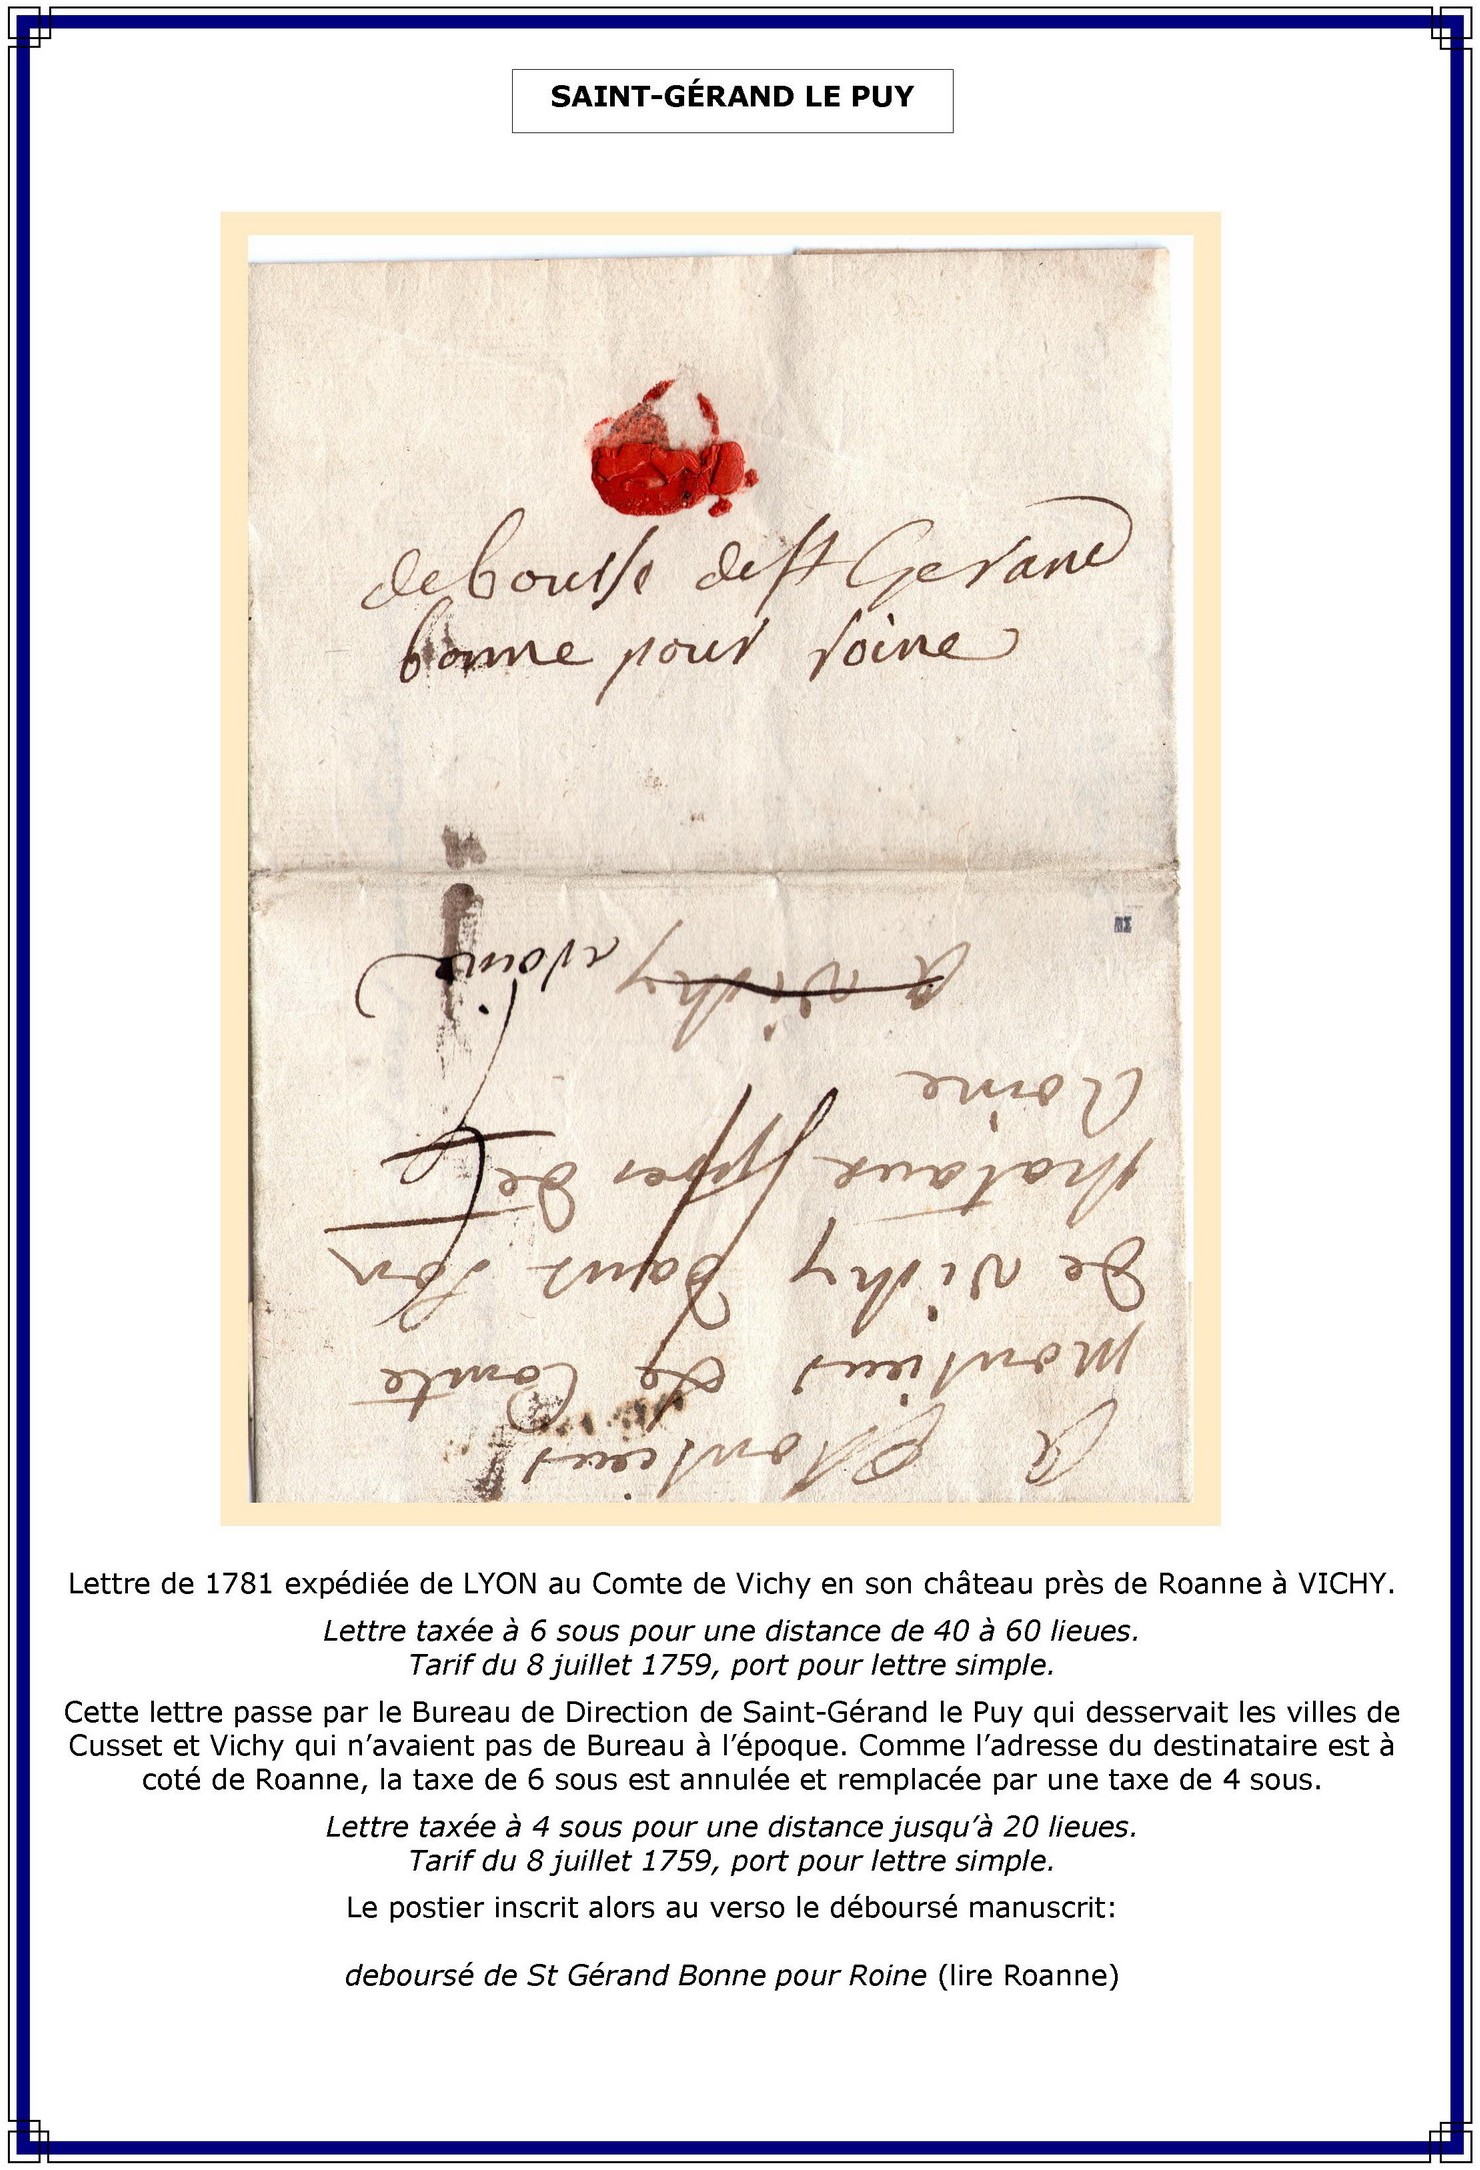 SAINT-GÉRAND LE PUY
debourse de st Gerand
bonne pour roine
a Monsieur
monsieur le Comte
de vichy dans son
chataux pres de
Roine
a vichy roine
Lettre de 1781 expédiée de LYON au Comte de Vichy en son château près de Roanne à VICHY.
Lettre taxée à 6 sous pour une distance de 40 à 60 lieues.
Tarif du 8 juillet 1759, port pour lettre simple.
Cette lettre passe par le Bureau de Direction de Saint-Gérand le Puy qui desservait les villes de
Cusset et Vichy qui n’avaient pas de Bureau à l’époque. Comme l’adresse du destinataire est à
coté de Roanne, la taxe de 6 sous est annulée et remplacée par une taxe de 4 sous.
Lettre taxée à 4 sous pour une distance jusqu’à 20 lieues.
Tarif du 8 juillet 1759, port pour lettre simple.
Le postier inscrit alors au verso le déboursé manuscrit:
deboursé de St Gérand Bonne pour Roine (lire Roanne)